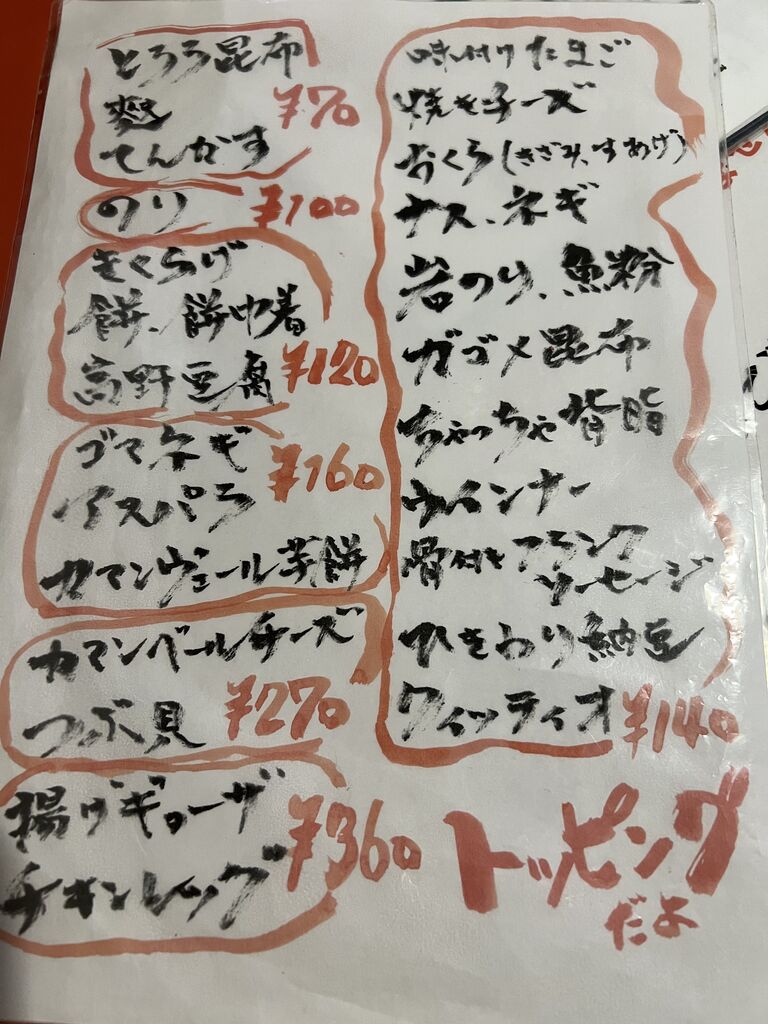 とろろ昆布
麩
てんかす
¥70
のり ¥100
きくらげ
餅、餅巾着
高野豆腐
¥120
ゴマネギ
アスパラ
¥160
カマンヴェール芋餅
カマンベールチーズ
つぶ貝
¥270
揚げギョーザ
チキンレッグ
¥360
味付けたまご
焼きチーズ
おくら(きざみ、すあげ)
ナス、ネギ
岩のり、魚粉
ガゴメ昆布
ちゃっちゃ背脂
ウインナー
骨付きフランク
ソーセージ
ひきわり納豆
クィッティオ
¥140
トッピング
だよ